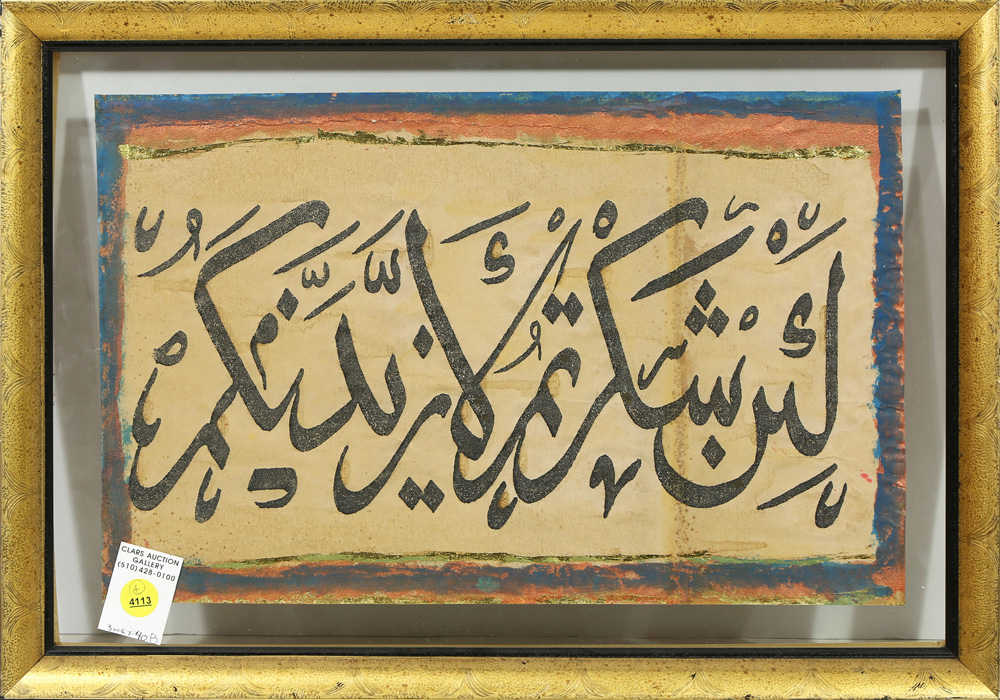 لَئِنْ شَكَرْتُمْ لَأَزِيدَنَّكُمْ
CLARS AUCTION
GALLERY
(510) 428-0100
4113